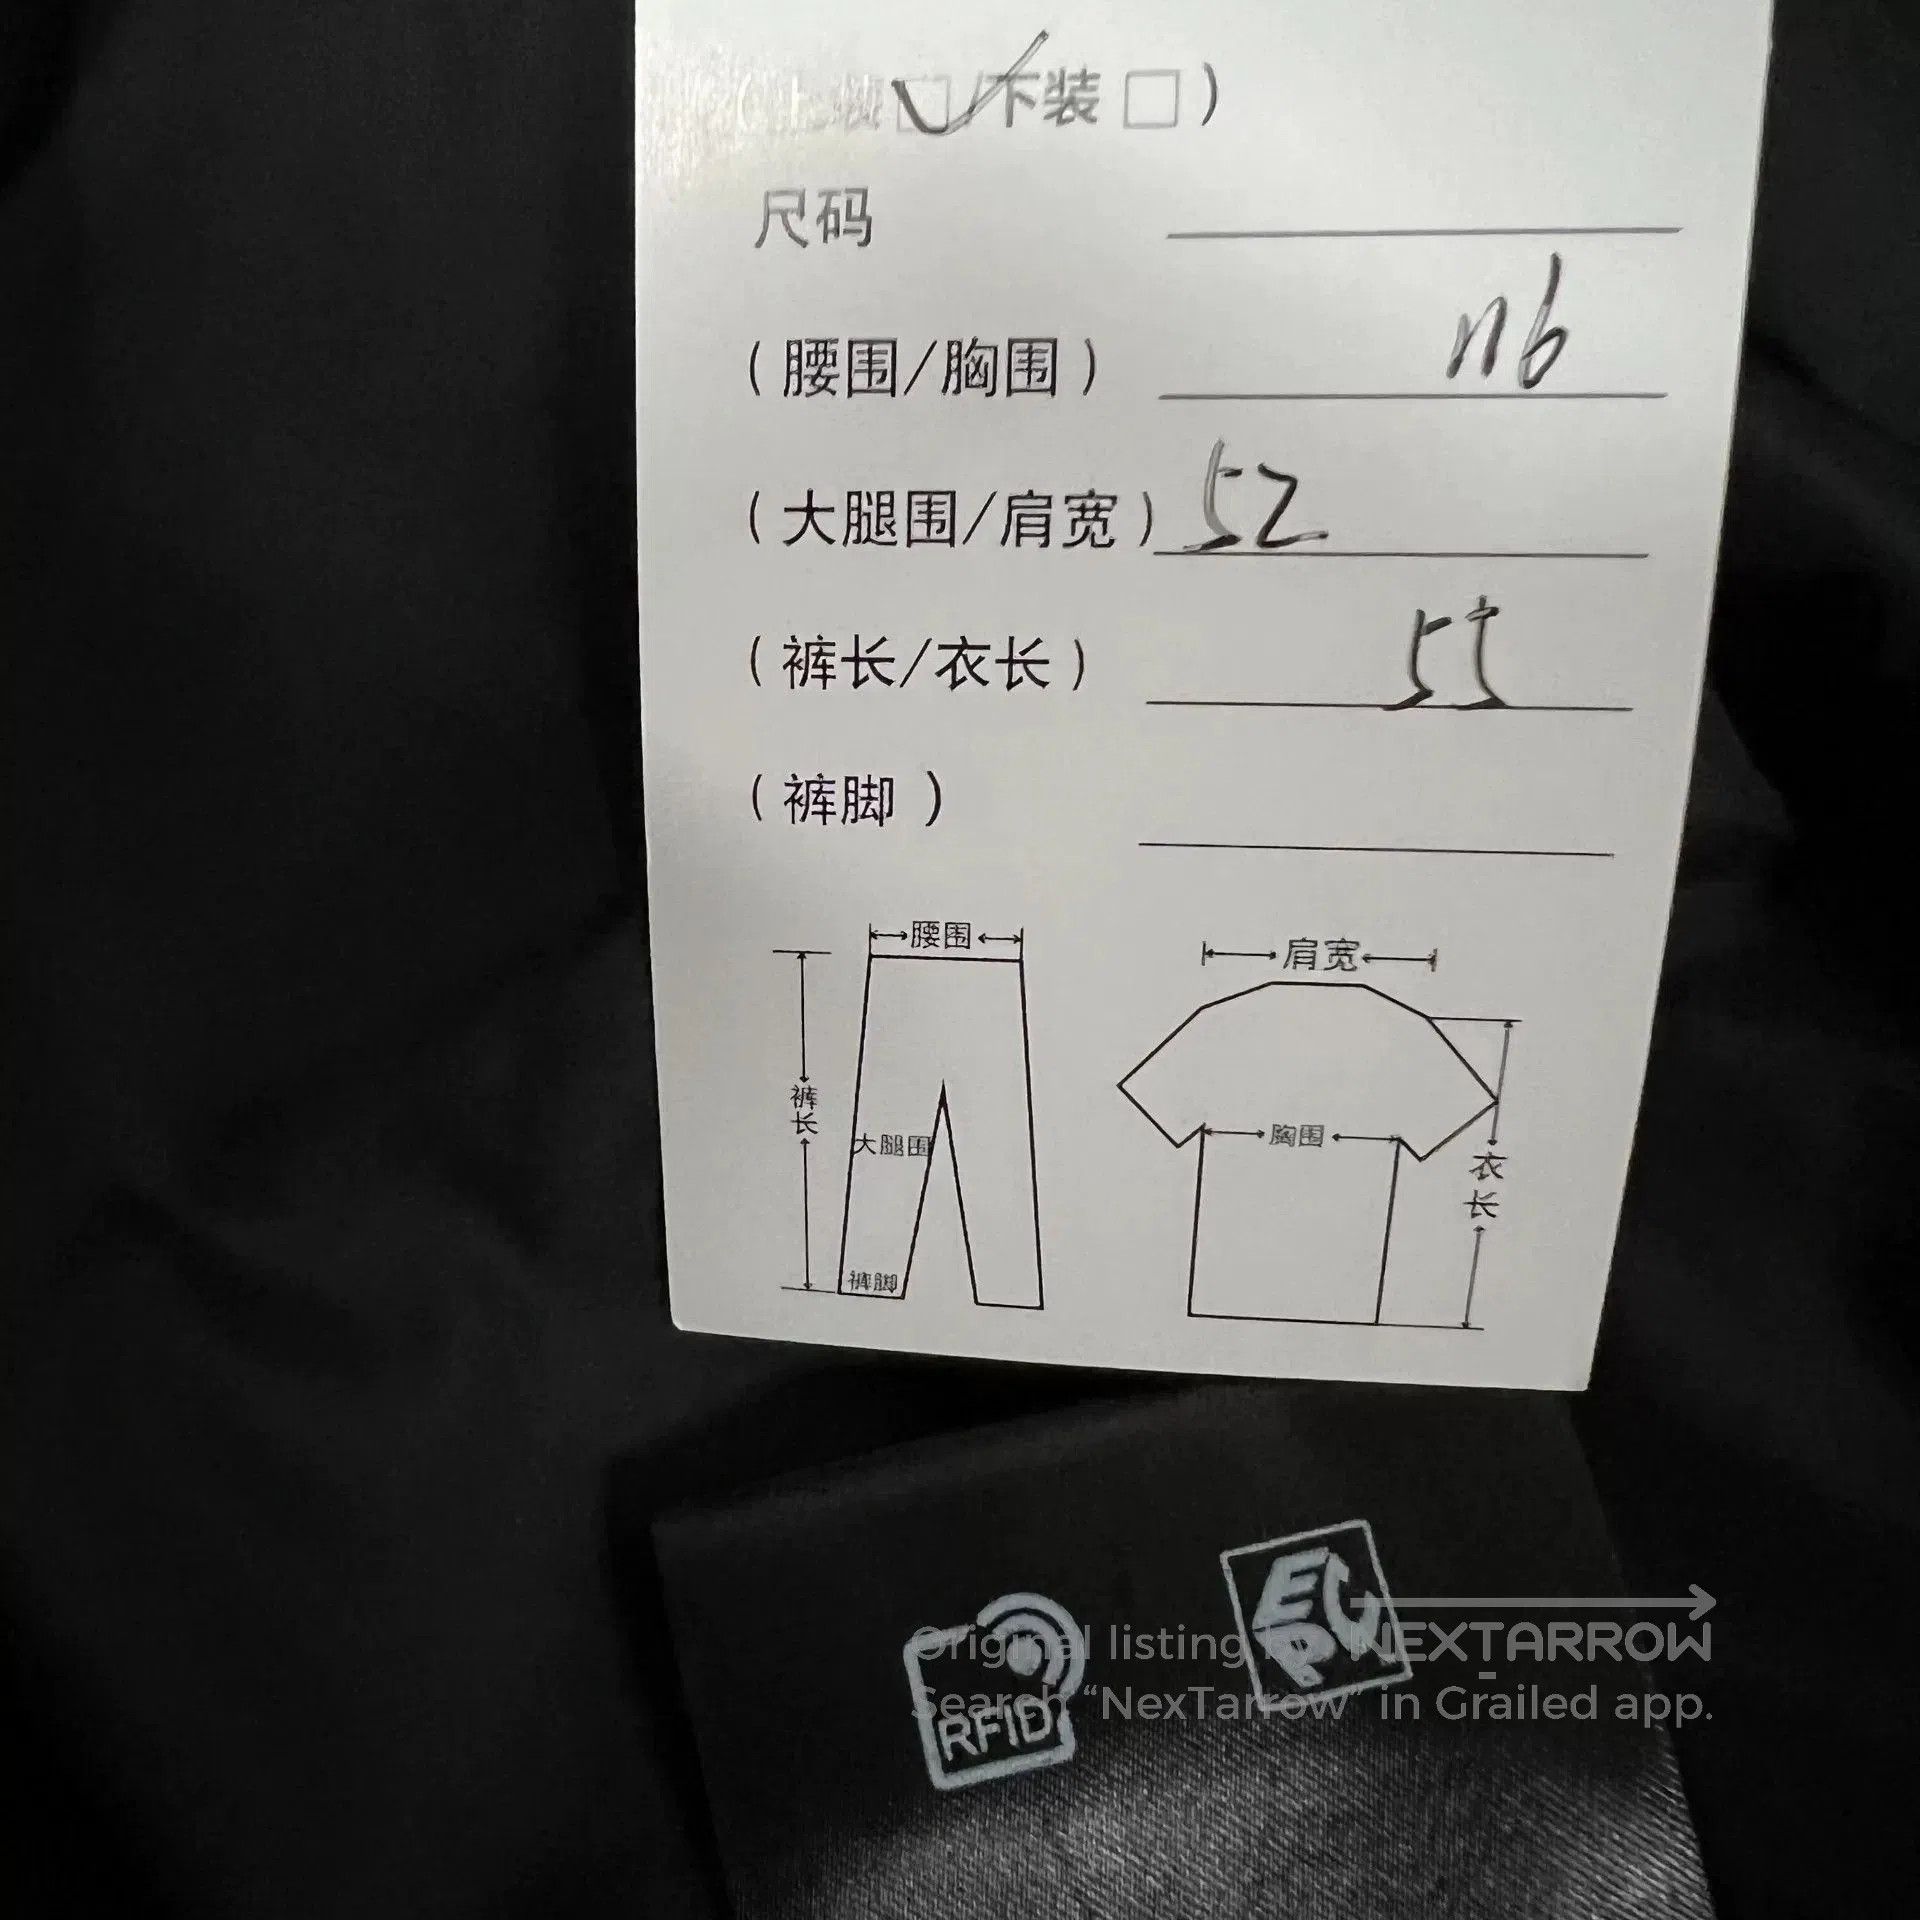 (上装□/下装□)
尺码
(腰围/胸围) 116
(大腿围/肩宽) 52
(裤长/衣长) 55
(裤脚 )
腰围
裤长
大腿围
裤脚
肩宽
胸围
衣长
RFID
Original listing by NEXTARROW
Search “NexTarrow” in Grailed app.